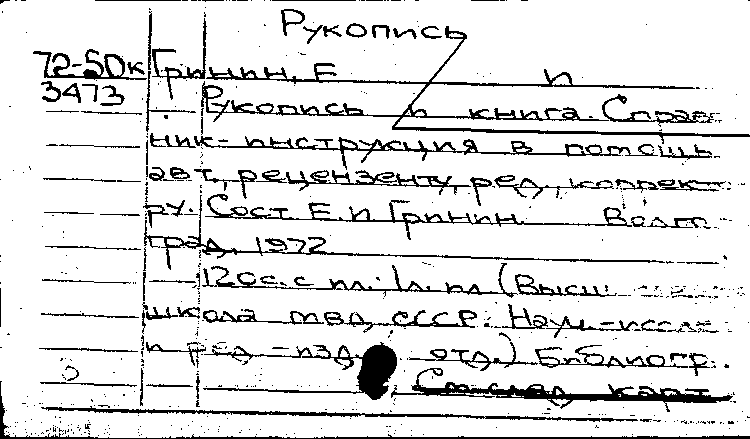 Рукопись
72-50к Гринин, Е И
3473 Рукопись и книга. Справ-
ник-инструкция в помощь
авт., рецензенту, ред., коррек-
ру. Сост. Е. И Гринин. Волго-
град, 1972
120с. с ил.; 1л. ил (Высш.
школа МВД СССР. Науч.-иссле
и ред.-изд. отд.) Библиогр.
См. след. карт.